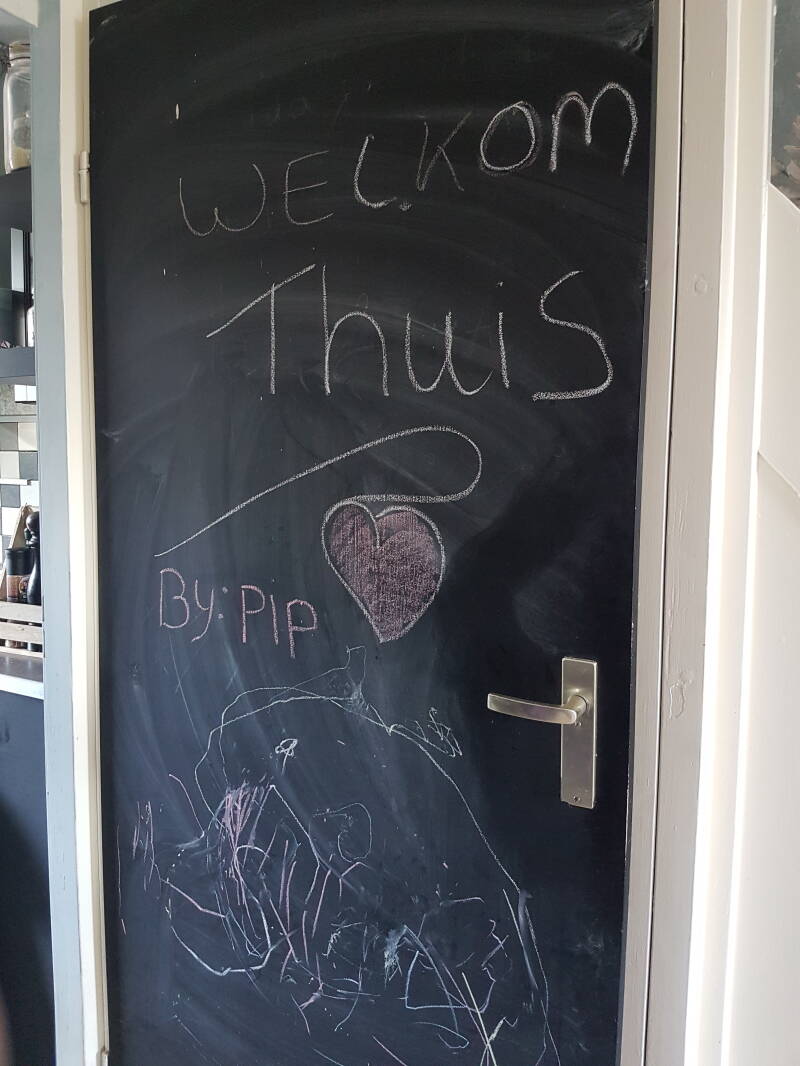 WELKOM
Thuis
By: Pip